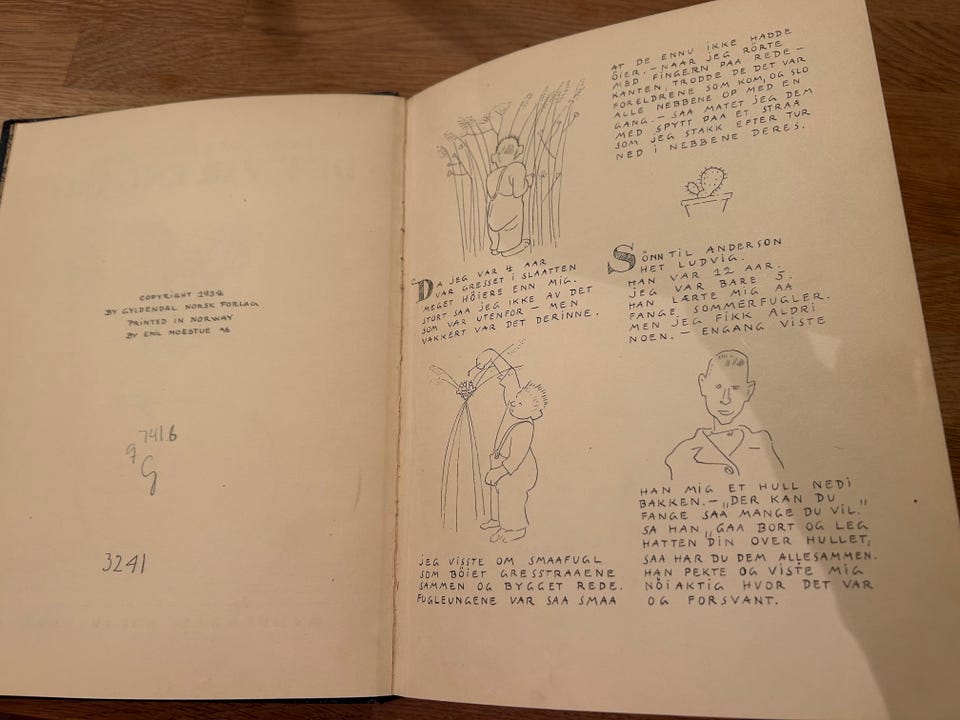 COPYRIGHT 1934
BY GYLDENDAL NORSK FORLAG
PRINTED IN NORWAY
BY EMIL MOESTUE A/S
q 741.6
G
3241
DA JEG VAR 4 AAR
VAR GRESSET I SLAATTEN
MEGET HÖIERE ENN MIG.
STORT SAA JEG IKKE AV DET
SOM VAR UTENFOR – MEN
VAKKERT VAR DET DERINNE.
JEG VISSTE OM SMAAFUGL
SOM BÖIET GRESSTRAAENE
SAMMEN OG BYGGET REDE.
FUGLEUNGENE VAR SAA SMAA
AT DE ENNU IKKE HADDE
ÖIER. – NAAR JEG RÖRTE
MED FINGERN PAA REDE –
KANTEN, TRODDE DE DET VAR
FORELDRENE SOM KOM, OG SLO
ALLE NEBBENE OP MED EN
GANG. – SAA MATET JEG DEM
MED SPYTT PAA ET STRAA
SOM JEG STAKK EFTER TUR
NED I NEBBENE DERES.
SÖNN TIL ANDERSON
HET LUDVIG.
HAN VAR 12 AAR.
JEG VAR BARE 5.
HAN LÆRTE MIG AA
FANGE SOMMERFUGLER.
MEN JEG FIKK ALDRI
NOEN. – ENGANG VISTE
HAN MIG ET HULL NEDI
BAKKEN. – „DER KAN DU
FANGE SAA MANGE DU VIL."
SA HAN „GAA BORT OG LEG
HATTEN DIN OVER HULLET,
SAA HAR DU DEM ALLESAMMEN.
HAN PEKTE OG VISTE MIG
NÖIAKTIG HVOR DET VAR
OG FORSVANT.